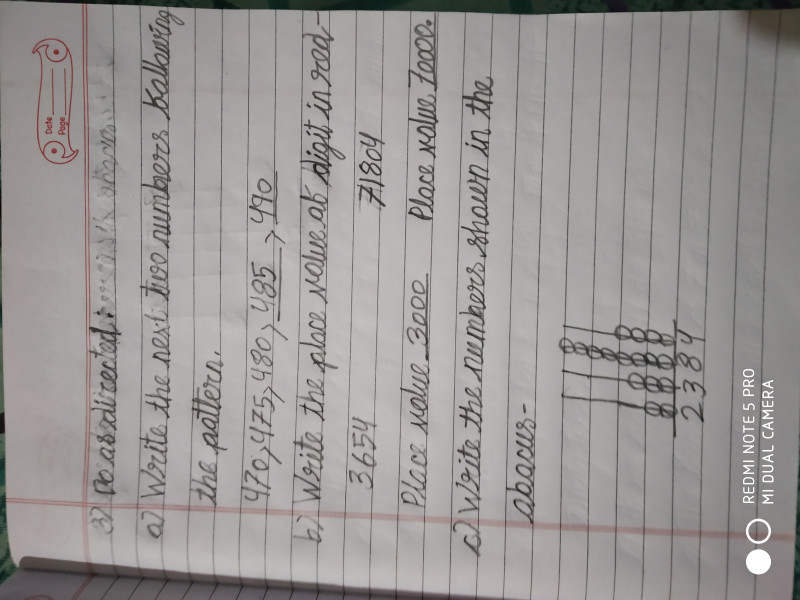 Date
Page
3) Do as directed:
a) Write the next two numbers Kallawing
the pattern.
470, 475, 480, 485, 490
b) Write the place value at digit in rod-
3654 71804
Place value 3000 Place value 7000.
c) Write the numbers shawn in the
abacus-
2 3 8 4
REDMI NOTE 5 PRO
MI DUAL CAMERA